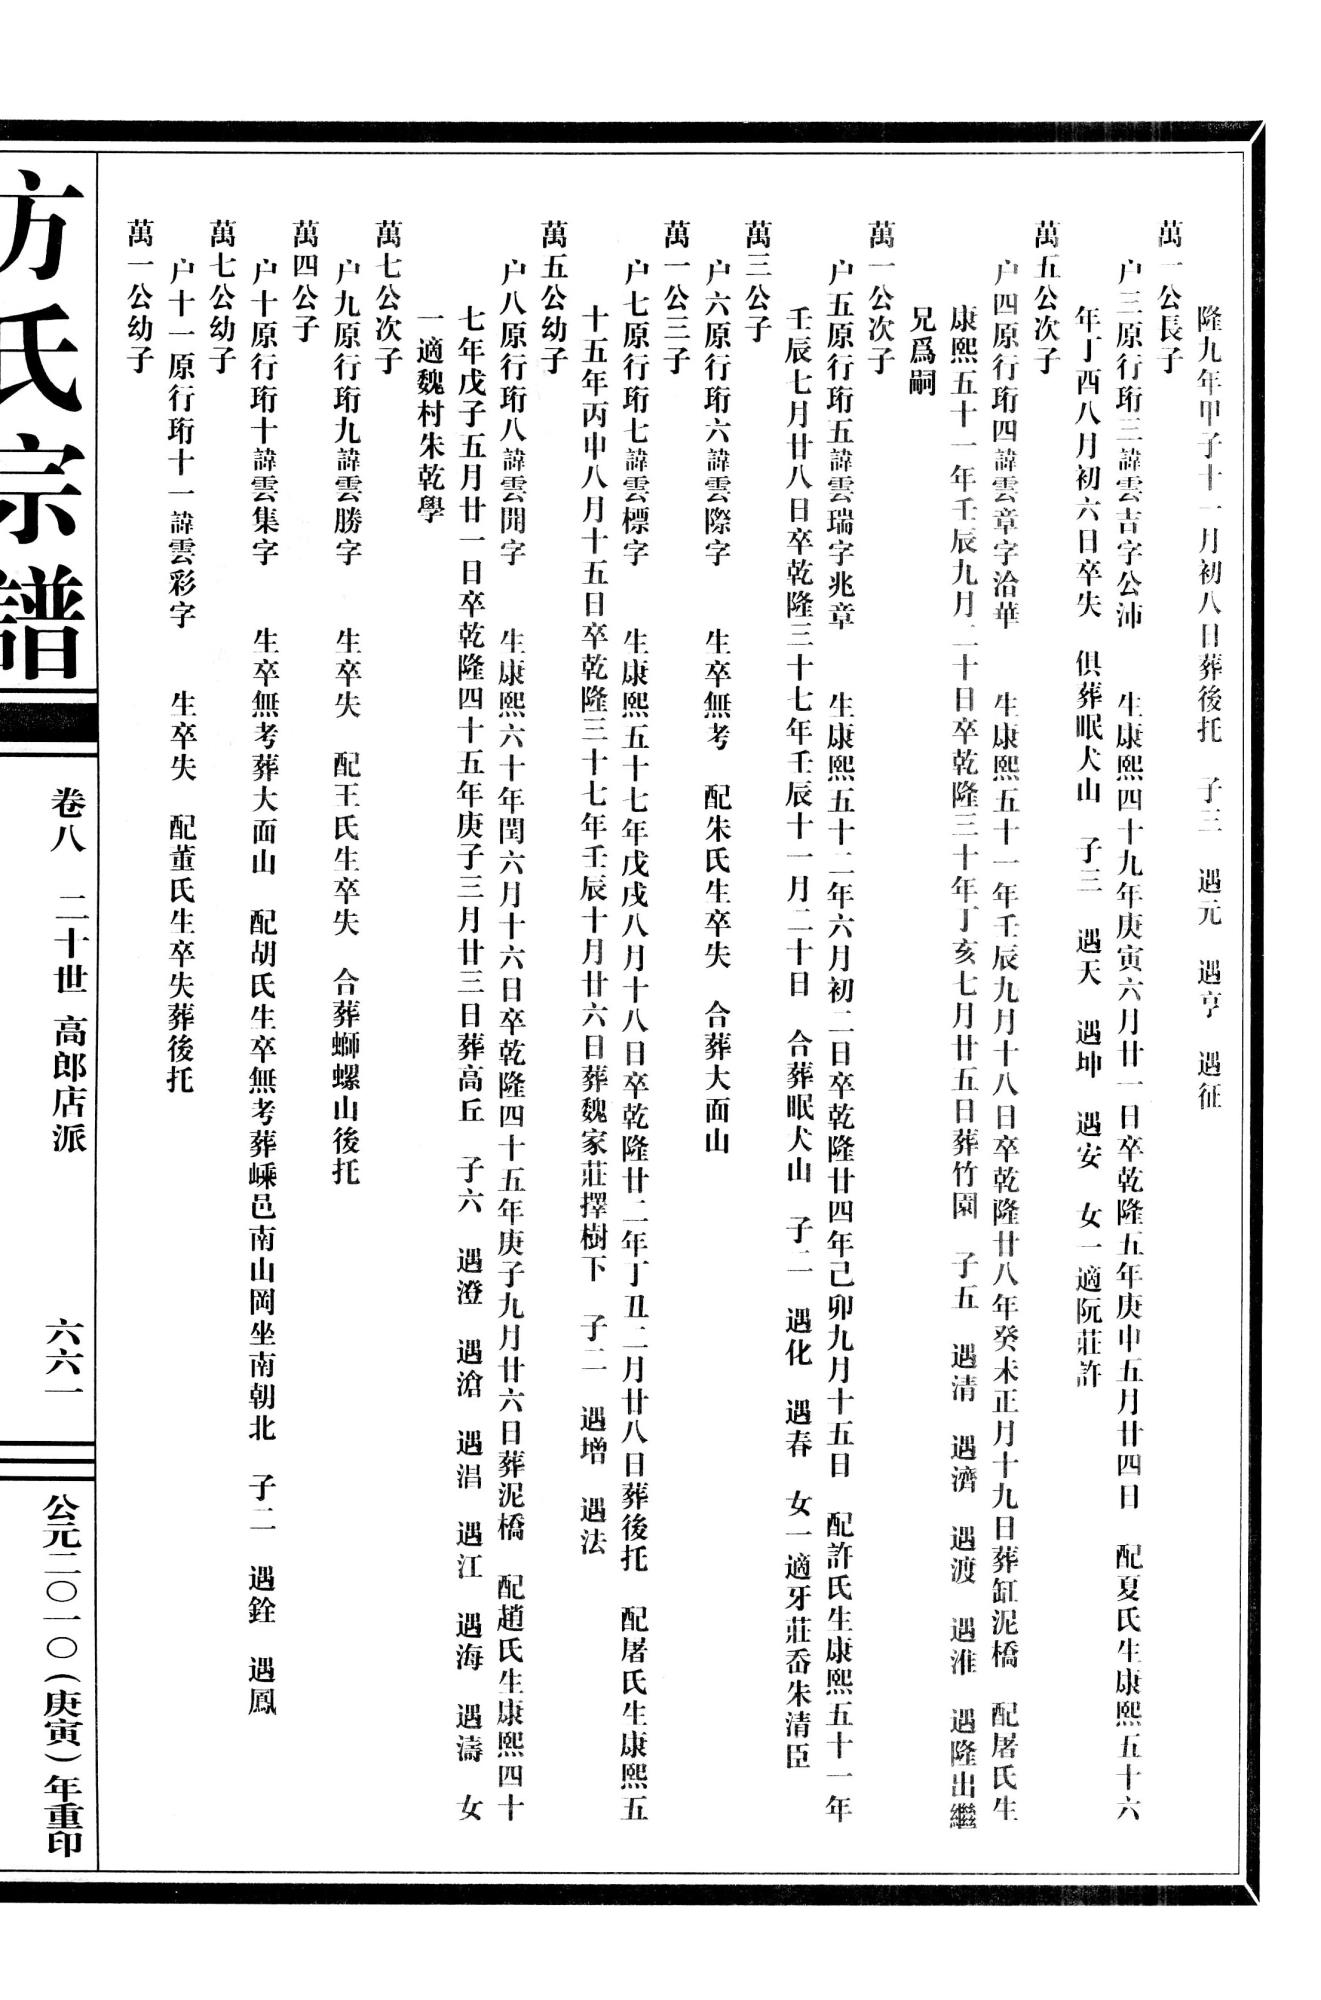 隆九年甲子十一月初八日葬後托　子三　遇元　遇亨　遇征
萬一公長子
户三原行珩三諱雲吉字公沛　生康熙四十九年庚寅六月廿一日卒乾隆五年庚申五月廿四日　配夏氏生康熙五十六
年丁酉八月初六日卒失　俱葬眠犬山　子三　遇天　遇坤　遇安　女一適阮莊許
萬五公次子
户四原行珩四諱雲章字洽華　生康熙五十一年壬辰九月十八日卒乾隆廿八年癸未正月十九日葬缸泥橋　配屠氏生
康熙五十一年壬辰九月二十日卒乾隆三十年丁亥七月廿五日葬竹園　子五　遇清　遇濟　遇渡　遇淮　遇隆出繼
兄爲嗣
萬一公次子
户五原行珩五諱雲瑞字兆章　生康熙五十二年六月初二日卒乾隆廿四年己卯九月十五日　配許氏生康熙五十一年
壬辰七月廿八日卒乾隆三十七年壬辰十一月二十日　合葬眠犬山　子二　遇化　遇春　女一適牙莊岙朱清臣
萬三公子
户六原行珩六諱雲際字　生卒無考　配朱氏生卒失　合葬大面山
萬一公三子
户七原行珩七諱雲標字　生康熙五十七年戊戌八月十八日卒乾隆廿二年丁丑二月廿八日葬後托　配屠氏生康熙五
十五年丙申八月十五日卒乾隆三十七年壬辰十月廿六日葬魏家莊擇樹下　子二　遇增　遇法
萬五公幼子
户八原行珩八諱雲開字　生康熙六十年閏六月十六日卒乾隆四十五年庚子九月廿六日葬泥橋　配趙氏生康熙四十
七年戊子五月廿一日卒乾隆四十五年庚子三月廿三日葬高丘　子六　遇澄　遇滄　遇淐　遇江　遇海　遇濤　女
一適魏村朱乾學
萬七公次子
户九原行珩九諱雲勝字　生卒失　配王氏生卒失　合葬螄螺山後托
萬四公子
户十原行珩十諱雲集字　生卒無考葬大面山　配胡氏生卒無考葬嵊邑南山岡坐南朝北　子二　遇銓　遇鳳
萬七公幼子
户十一原行珩十一諱雲彩字　生卒失　配董氏生卒失葬後托
萬一公幼子
方氏宗譜
卷八　二十世　高郎店派　六六一
公元二〇一〇（庚寅）年重印